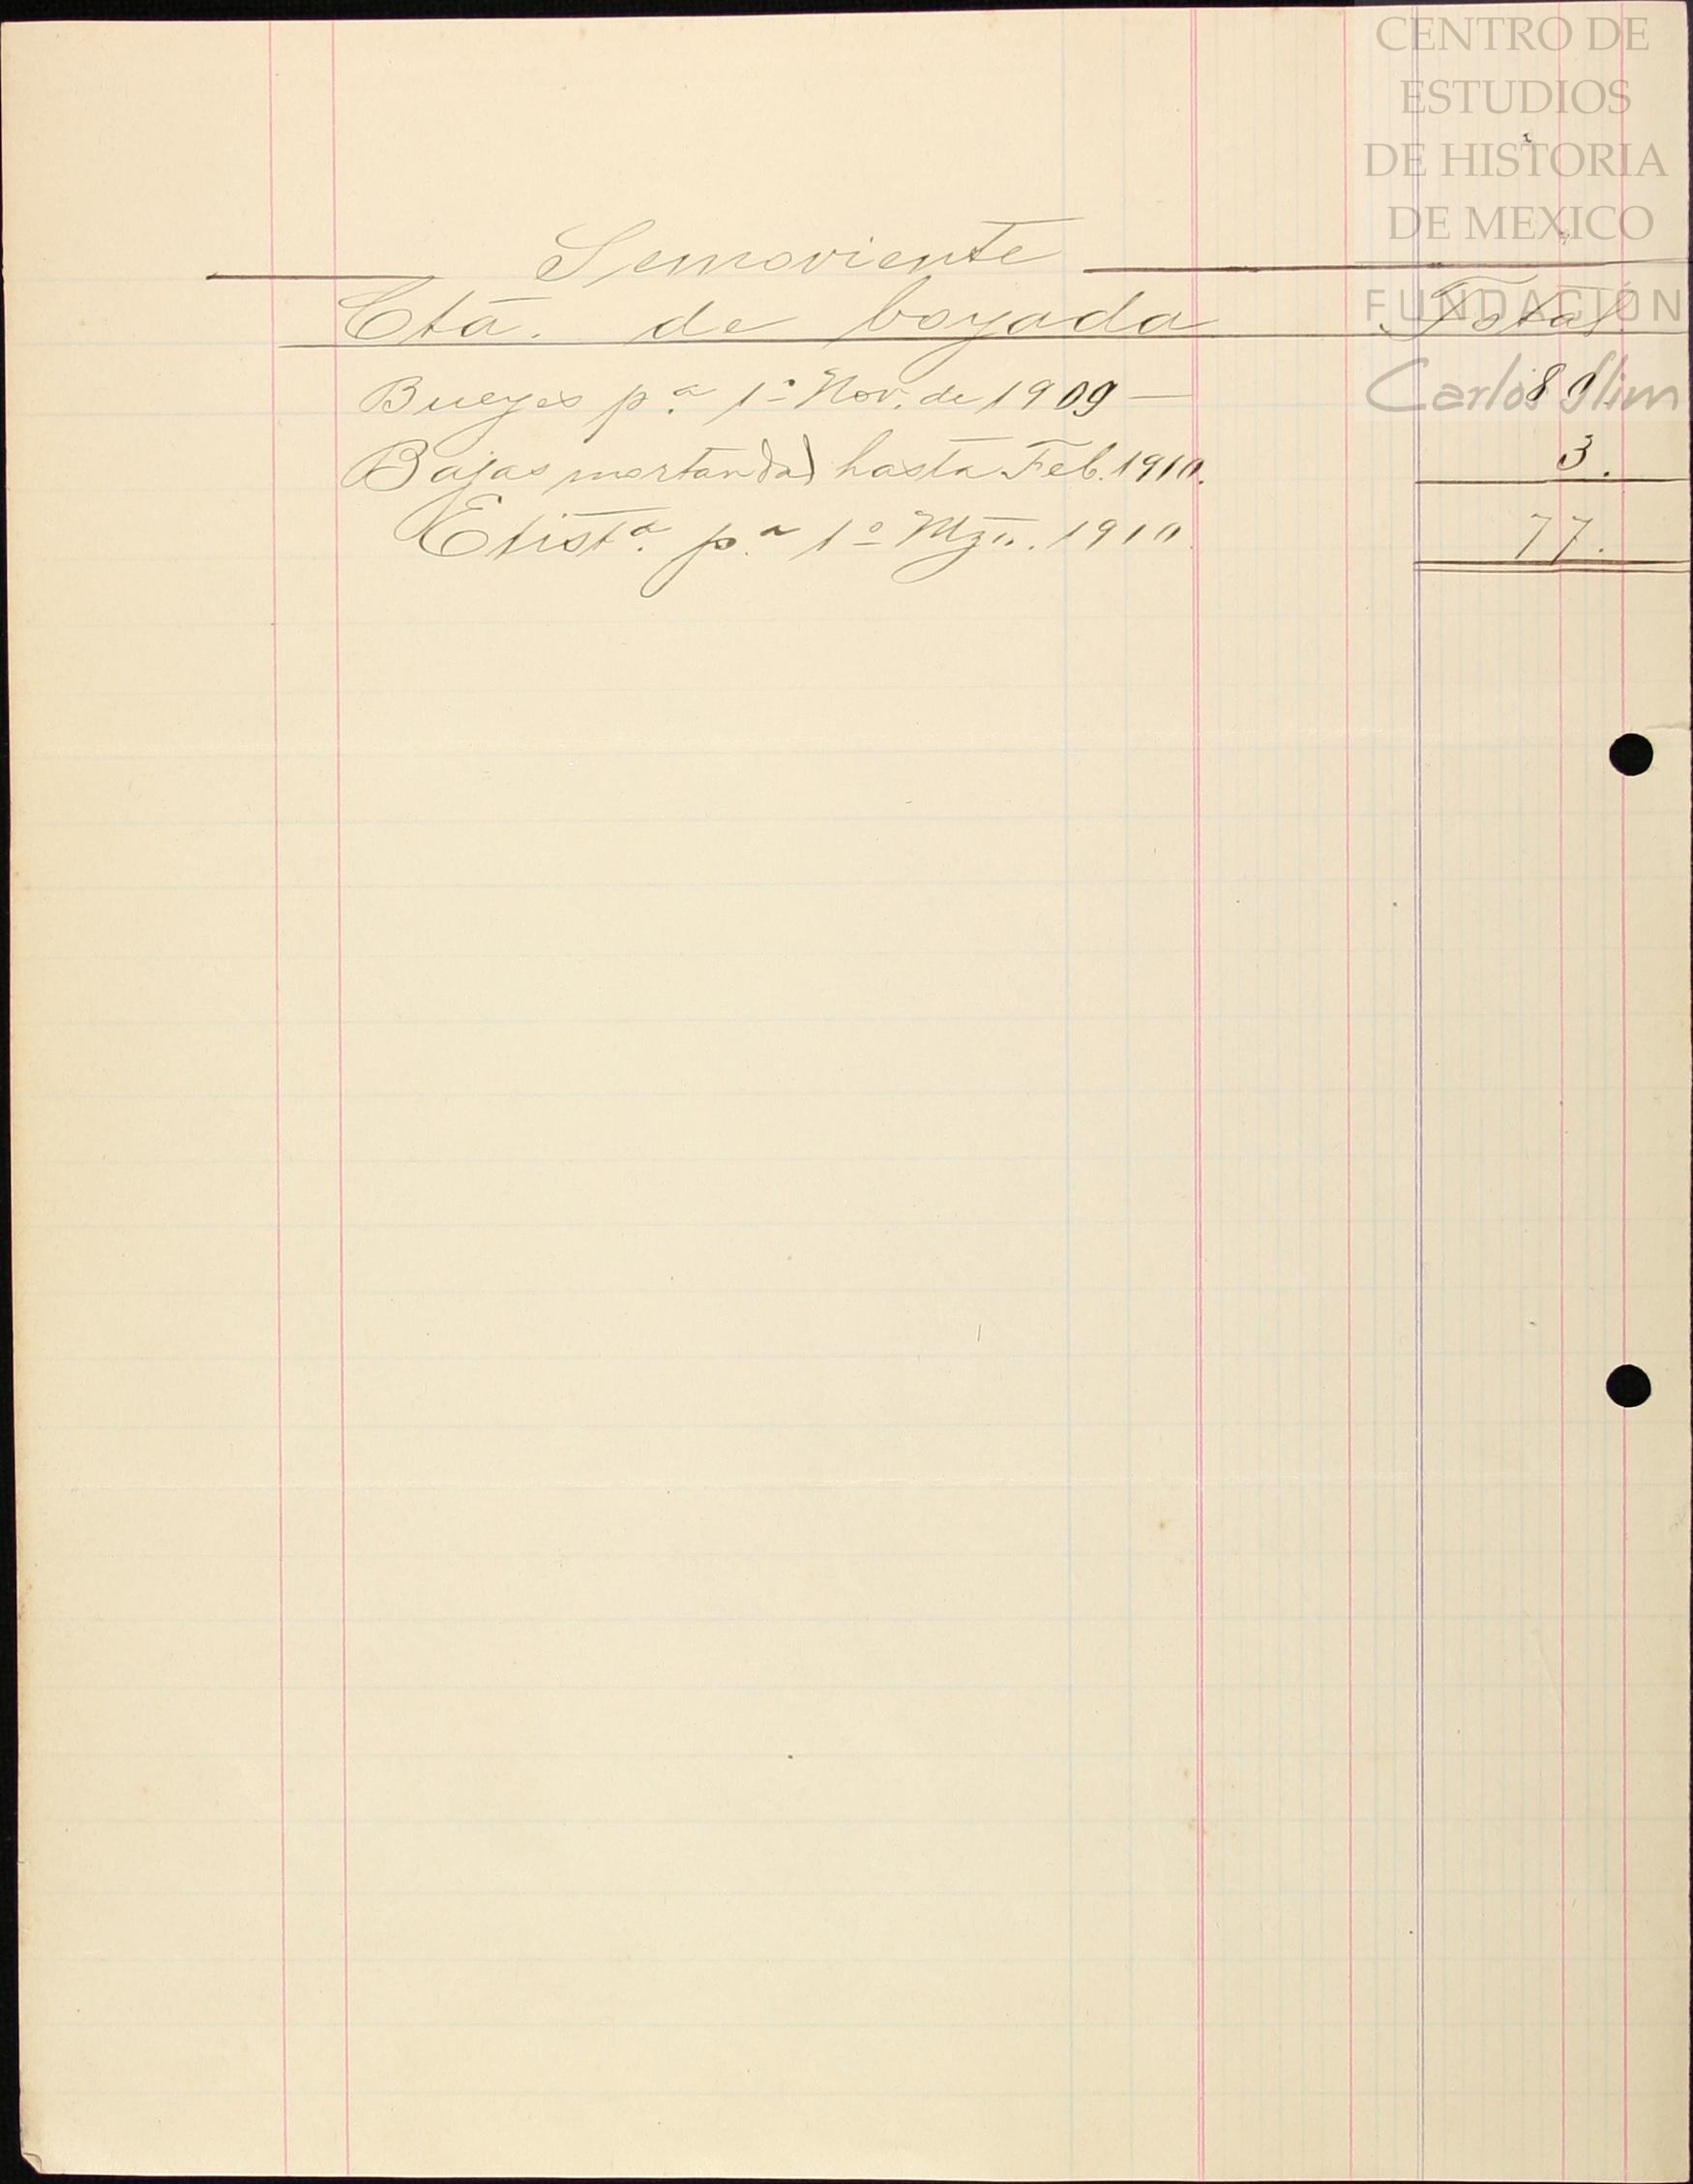 CENTRO DE
ESTUDIOS
DE HISTORIA
DE MEXICO
FUNDACIÓN
Carlos Slim
Semoviente
Ctā. de boyada Total
Bueyes p.ª 1º Nov. de 1909 — 80
Bajas mortandad hasta Feb. 1910. 3.
Exist.ª p.ª 1º Mzo. 1910. 77.